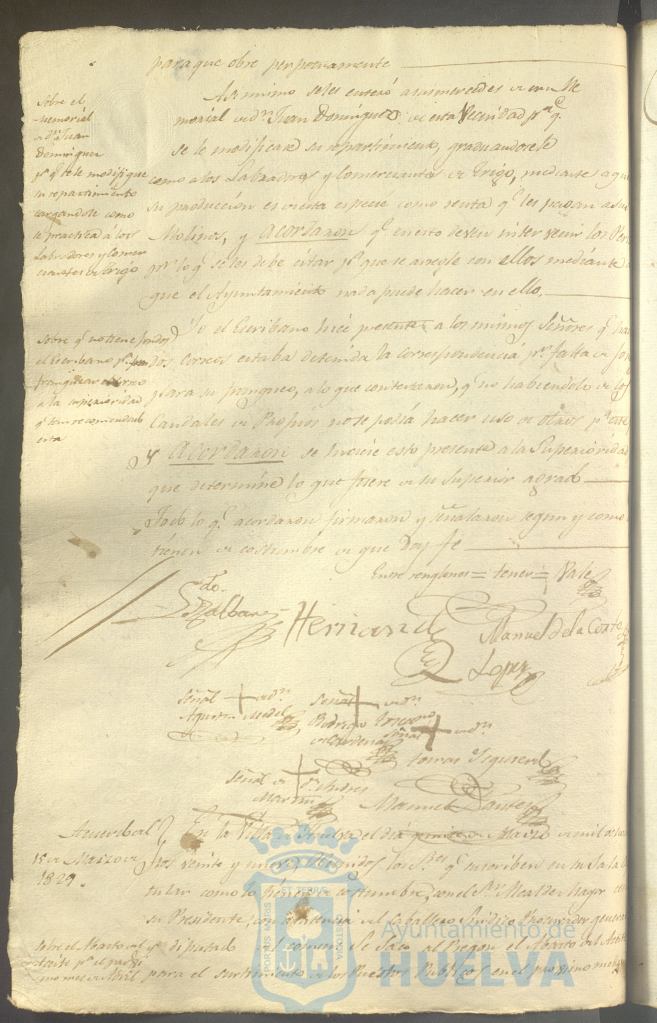 para que obre perpetuamente
Sobre el
memorial
de Dn. Juan
Dominguez
pa. qe. se le modifique
su repartimiento
cargandole como
se practica a los
Labradores y Comer
ciantes de trigo
Asi mismo se les enteró a sus mercedes de un Me
morial de dn. Juan Dominguez de esta Vecindad pa. qe.
se le modificase su repartimiento, graduandosele
como a los Labradores y Comerciantes de trigo, mediante a que
su producción es en esta especie como renta qe. les pagan a sus
Molinos, y Acordaron qe. en esto deven intervenir los
pr. lo qe. se les debe citar pa. que se arregle con ellos mediante a
que el Ayuntamiento nada puede hacer en ello,
Sobre qe. no tiene fondos
el Escribano pa.
franquear el correo
a la superioridad
qe. tan recomendado
esta
Yo el Escribano hice presente a los mismos Señores qe.
dos Correos estaba detenida la correspondencia pr. falta de
para su franqueo, a lo que contextaron, qe. no habiendolo de los
Caudales de Propios no se podia hacer uso de otros pa. este
y Acordaron se hiciese esto presente a la Superioridad
que determine lo que fuere de su Superior agrado
Todo lo qe. acordaron firmaron y señalaron segun y como
tienen de costumbre de que Doy fe
Entre renglones = tener = Vale
Hernand
Manuel de la Corte
Lopez
Señal de dn.
Agustin
Señal de dn.
Rodrigo
Señal de dn.
Tomas Izquierdo
Señal de Dn. Andres
Martin
Manuel
Acuerdo
15 de Marzo de
1829.
En la Villa de Huelva el dia quince de Marzo de mil
tos veinte y nueve reunidos los Sres. qe. suscriben en su Sala
tular como lo tienen de costumbre, con el Sr. Alcalde Mayor
su Presidente, con asistencia del Caballero Sindico Procurador general
Sobre el
Aceite pa. el proxi
mo mes de Abril
del comun Se Saco al Pregon el Abasto del Aceite
para el surtimiento de los Puestos Publicos en el proximo mes
PORTUS MARIS
ET TERRE
CUSTODIA
Ayuntamiento de
HUELVA